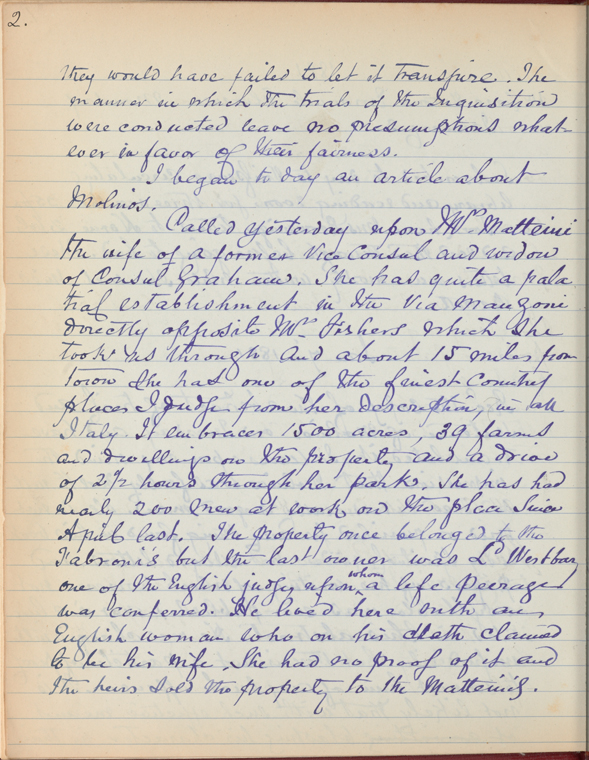 2.
they would have failed to let it transpire. The
manner in which the trials of the Inquisition
were conducted leave no presumptions what-
ever in favor of their fairness.
I began to day an article about
Molinos.
Called yesterday upon Mrs. Matteini
the wife of a former Vice Consul and widow
of Consul Graham. She has quite a pala
tial establishment in the Via Manzoni
directly opposite Mrs. Fishers which she
took us through and about 15 miles from
town she has one of the finest Country
places I judge from her description, in all
Italy. It embraces 1500 acres, 39 farms
and dwellings on the property and a drive
of 2½ hours through her park. She has had
nearly 200 men at work on the place since
April last. The property once belonged to the
Fabroni's but the last owner was Ld Westbury
one of the English judges upon whom a life peerage
was conferred. He lived here with an
English woman who on his death claimed
to be his wife. She had no proof of it and
the heirs sold the property to the Matteinis.